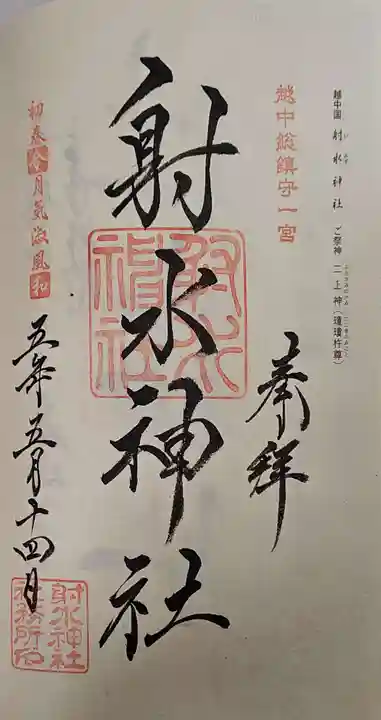 越中国 射水神社 ご祭神 二上神(瓊瓊杵尊)
越中総鎮守一宮
奉拝
射水神社
射水神社
初春令月気淑風和
五年五月十四日
射水神社社務所印